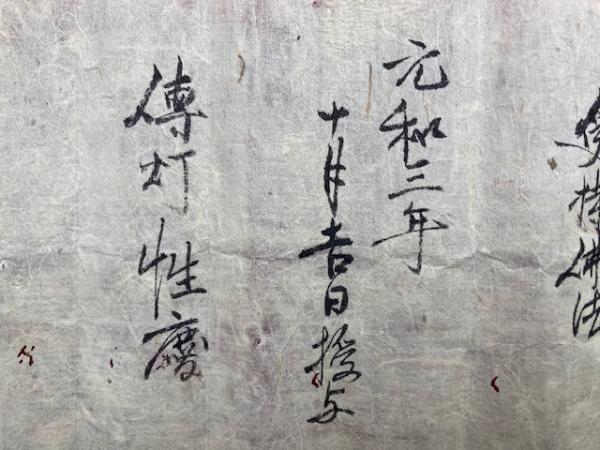 持佛法
元和三年
十月吉日授与
傳灯 性慶